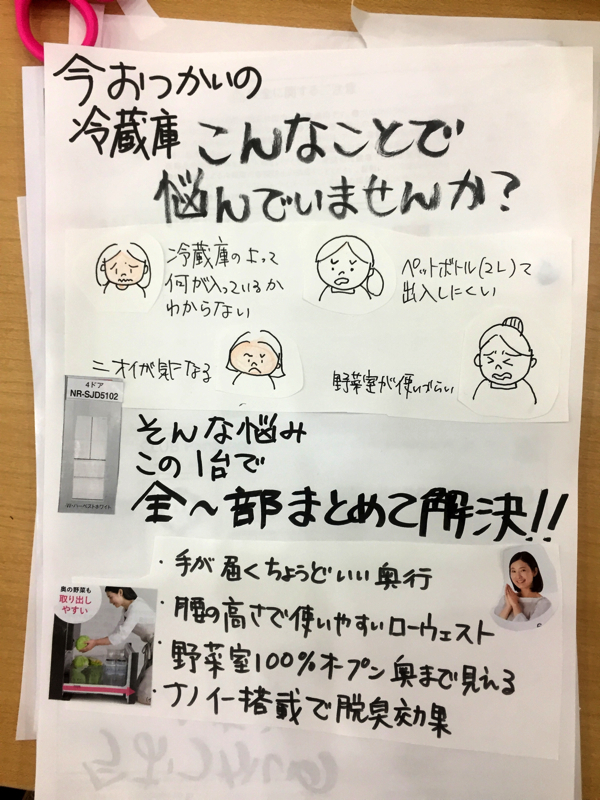 今おつかいの
冷蔵庫 こんなことで
悩んでいませんか?
冷蔵庫のよって
何が入っているか
わからない
ペットボトル(2L)て
出入しにくい
ニオイが気になる
野菜室が使いづらい
4ドア
NR-SJD5102
W-ハーベストホワイト
そんな悩み
この1台で
全～部まとめて解決!!
・手が届くちょうどいい奥行
・腰の高さで使いやすいローウェスト
・野菜室100%オープン 奥まで見える
・ナノイー搭載で脱臭効果
奥の野菜も
取り出し
やすい